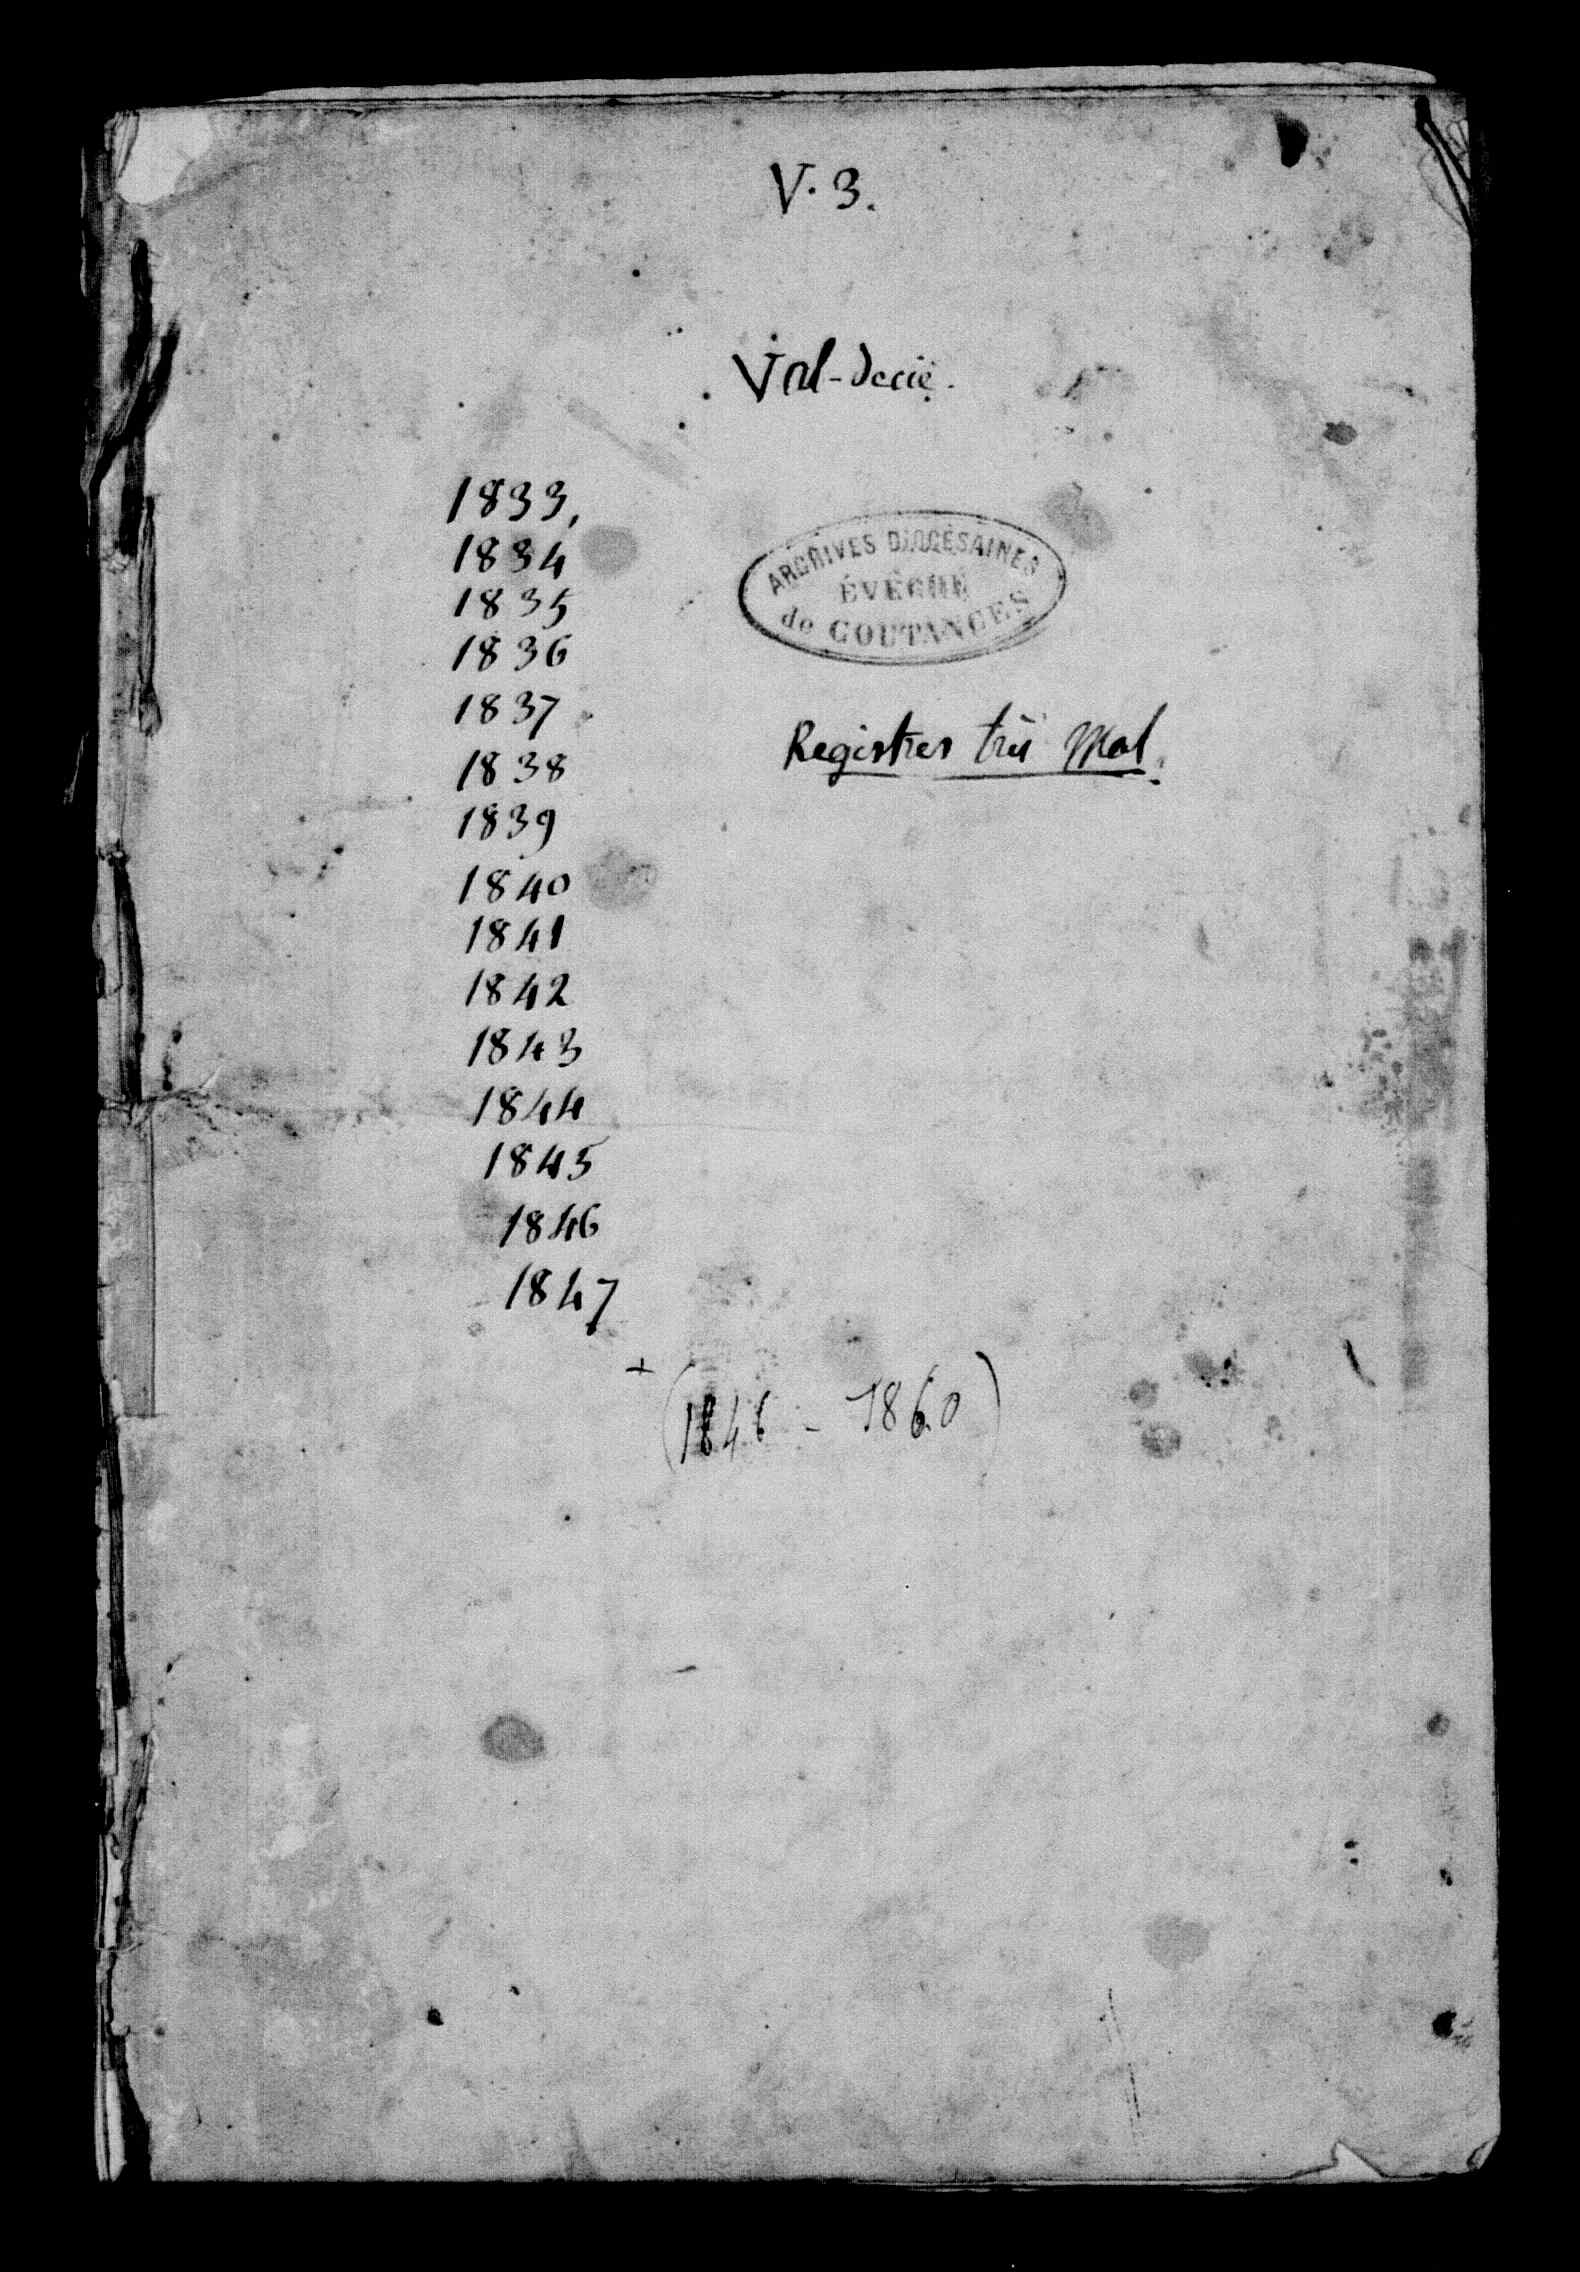 V. 3.
Val-decie.
1833,
1834
1835
1836
1837
1838
1839
1840
1841
1842
1843
1844
1845
1846
1847
ARCHIVES DIOCÉSAINES
ÉVÊCHÉ
de COUTANCES
Registres très Mal.
+ (1846 - 1860)